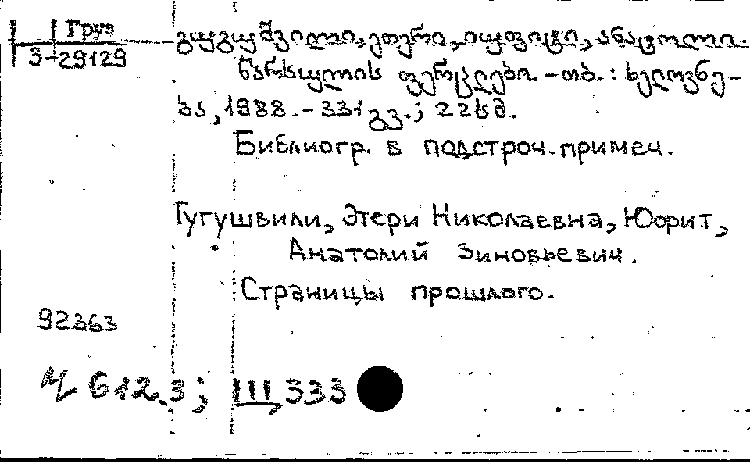 Груз
3-29129
გუგუშვილი, ეთერი, იუფიტი, ანატოლი.
წარსულის ფურცლები. - თბ.: ხელოვნე-
ბა, 1988. - 331 გვ.; 22სმ.
Библиогр. в подстроч. примеч.
Гугушвили, Этери Николаевна, Юфит,
Анатолий Зиновьевич.
Страницы прошлого.
92363
Ч 612.3; III, 333